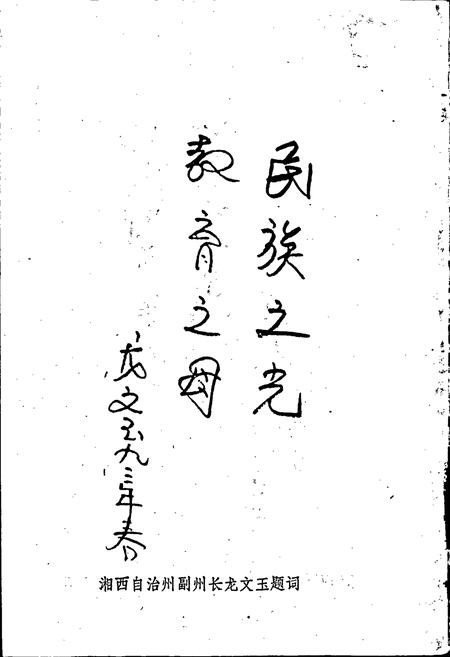 民族之光
教育之母
龙文玉九三年春
湘西自治州副州长龙文玉题词